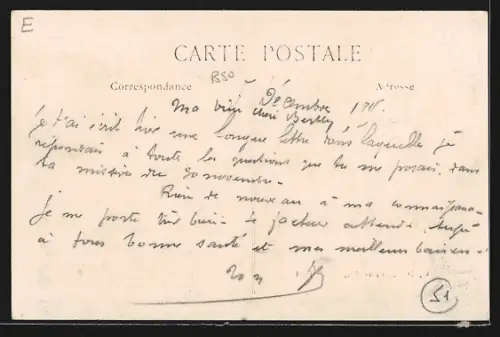 E
CARTE POSTALE
Correspondance
Adresse
B50
5 Décembre 191
Ma bien chère Berthe,
Je t'ai écrit hier une longue lettre dans laquelle je
répondais à toute les questions que tu me posais dans
ta missive du 30 novembre.
Rien de nouveau à ma connaissance.
Je me porte très bien. Le facteur attend.
à tous bonne santé et mes meilleurs baisers.
Ton
51